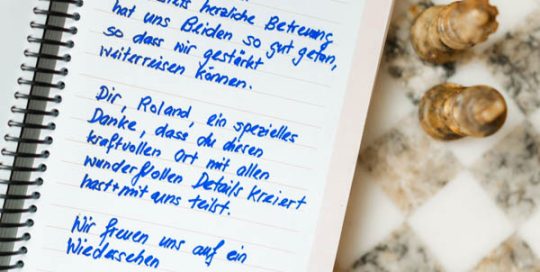 herzliche Betreuung
hat uns Beiden so gut getan,
so dass wir gestärkt
weiterreisen können.
Dir, Roland, ein spezielles
Danke, dass du diesen
kraftvollen Ort mit allen
wundervollen Details kreiert
hast + mit uns teilst.
Wir freuen uns auf ein
Wiedersehen